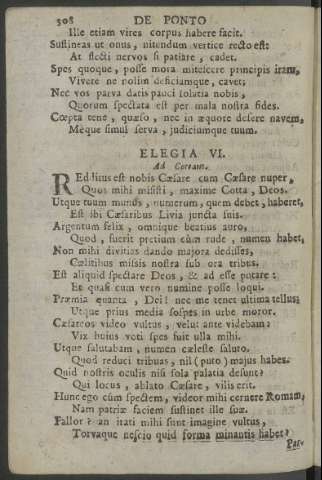 308 DE PONTO
Ille etiam vires corpus habere facit.
Sustineas ut onus, nitendum vertice recto est:
At flecti nervos si patiare, cadet.
Spes quoque, posse mora mitescere principis iram,
Vivere ne nolim deficiamque, cavet;
Nec vos parva datis pauci solatia nobis,
Quorum spectata est per mala nostra fides.
Cœpta tene, quæso, nec in æquore desere navem,
Meque simul serva, judiciumque tuum.
ELEGIA VI.
Ad Cottam.
REdditus est nobis Cæsar cum Cæsare nuper,
Quos mihi misisti, maxime Cotta, Deos.
Utque tuum munus, numerum, quem debet, haberet,
Est ibi Cæsaribus Livia juncta suis.
Argentum felix, omnique beatius auro,
Quod, fuerit pretium cùm rude, numen habet,
Non mihi divitias dando majora dedisses,
Cælitibus missis nostra sub ora tribus.
Est aliquid spectare Deos, & ad esse putare:
Et quasi cum vero numine posse loqui.
Præmia quanta, Dei! nec me tenet ultima tellus;
Utque prius media sospes in urbe moror.
Cæsareos video vultus, velut ante videbam:
Vix hujus voti spes fuit ulla mihi.
Utque salutabam, numen cæleste saluto.
Quod reduci tribuas, nil (puto) majus habes.
Quid nostris oculis nisi sola palatia desunt?
Qui locus, ablato Cæsare, vilis erit.
Hunc ego cùm spectem, videor mihi cernere Romam,
Nam patriæ faciem sustinet ille suæ.
Fallor? an irati mihi sunt imagine vultus,
Torvaque nescio quid forma minantis habet?
Par-